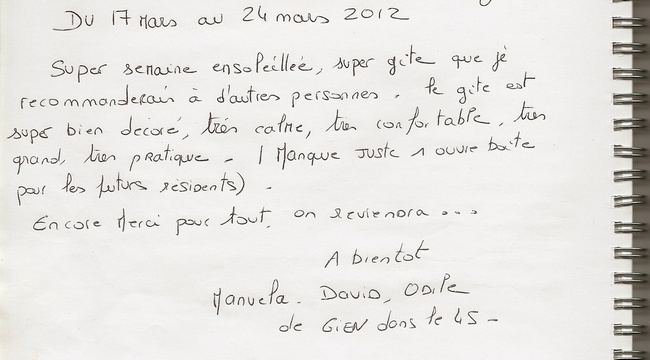 Du 17 Mars au 24 mars 2012
Super semaine ensoleillée, super gîte que je
recommanderais à d'autres personnes. le gîte est
super bien décoré, très calme, très confortable, très
grand, très pratique - ( Manque juste 1 ouvre boite
pour les futurs résidents) -
Encore Merci pour tout, on reviendra ...
A bientot
Manuela. David, Odile
de GIEN dans le 45 -